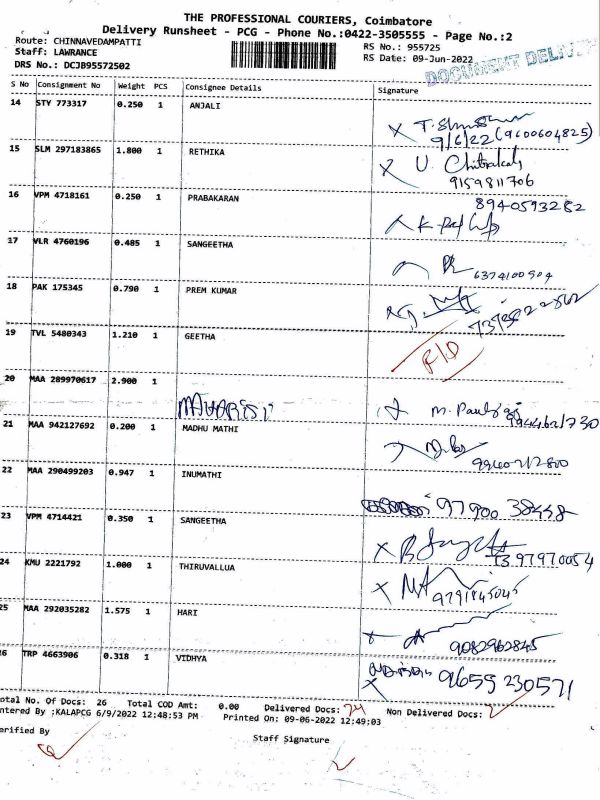 THE PROFESSIONAL COURIERS, Coimbatore
Delivery Runsheet - PCG - Phone No.:0422-3505555 - Page No.:2
Route: CHINNAVEDAMPATTI
RS No.: 955725
Staff: LAWRANCE
RS Date: 09-Jun-2022
DRS No.: DCJB95572502
DOCUMENT DELIVE
S No Consignment No Weight PCS Consignee Details Signature
14 STY 773317 0.250 1 ANJALI
9/6/22 (9600604825)
15 SLM 297183865 1.800 1 RETHIKA
U. Chitrakala
9159811706
16 VPM 4718161 0.250 1 PRABAKARAN
8940593282
17 VLR 4760196 0.485 1 SANGEETHA
6374100904
18 PAK 175345 0.790 1 PREM KUMAR
19 TVL 5480343 1.210 1 GEETHA
20 MAA 289970617 2.900 1
21 MAA 942127692 0.200 1 MADHU MATHI
22 MAA 290499203 0.947 1 INUMATHI
97900 38448
23 VPM 4714421 0.350 1 SANGEETHA
24 KMU 2221792 1.000 1 THIRUVALLUA
9791845045
25 MAA 292035282 1.575 1 HARI
9082962845
26 TRP 4663906 0.318 1 VIDHYA
9655 230571
otal No. Of Docs: 26 Total COD Amt: 0.00 Delivered Docs: 24 Non Delivered Docs: 2
ntered By :KALAPCG 6/9/2022 12:48:53 PM Printed On: 09-06-2022 12:49:03
erified By
Staff Signature